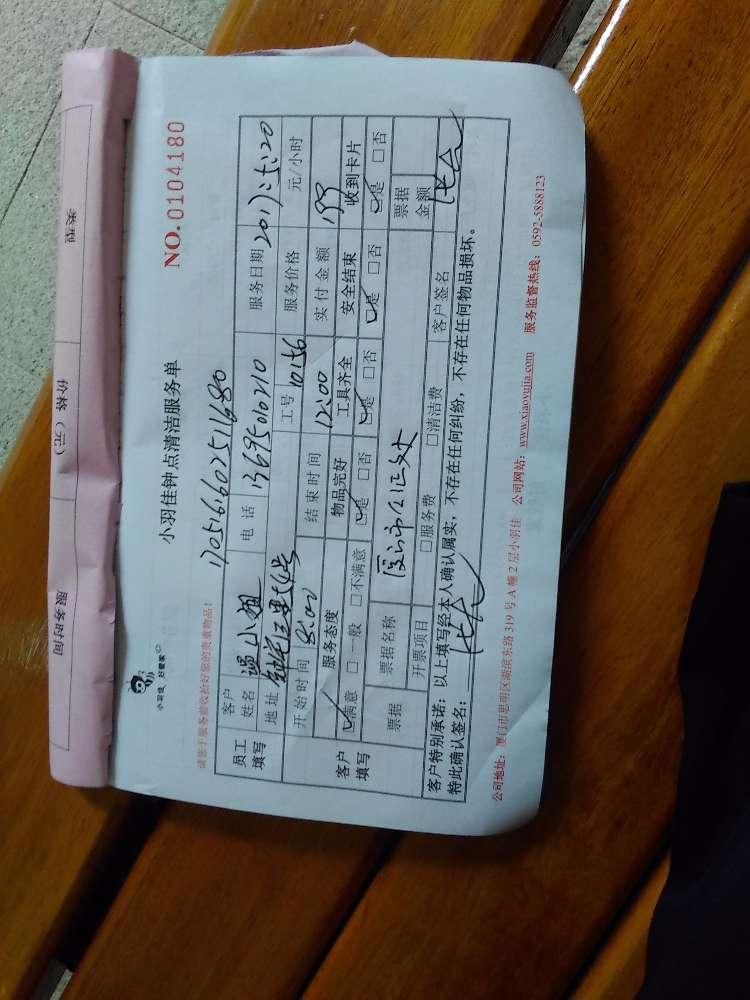 类型
价格（元）
服务时间
小羽佳 好管家
小羽佳钟点清洁服务单
NO. 0104180
请您于服务前收拾好您的贵重物品！
1705161602511680
员工填写
客户姓名 温小姐 电话 13695010210 服务日期 2017:5:20
地址 工号 10156 服务价格 元/小时
开始时间 8:00 结束时间 12:00 实付金额 199
客户填写
服务态度 物品完好 工具齐全 安全结束 收到卡片
☑满意 □一般 □不满意 ☑是 □否 ☑是 □否 ☑是 □否 ☑是 □否
票据 票据名称 厦门市公证处 票据金额
开票项目 □服务费 □清洁费 客户签名
客户特别承诺：以上填写经本人确认属实，不存在任何纠纷，不存在任何物品损坏。
特此确认签名：
公司地址：厦门市思明区湖滨东路 319 号 A 幢 2 层小羽佳 公司网站：www.xiaoyujia.com 服务监督热线：0592-5888123